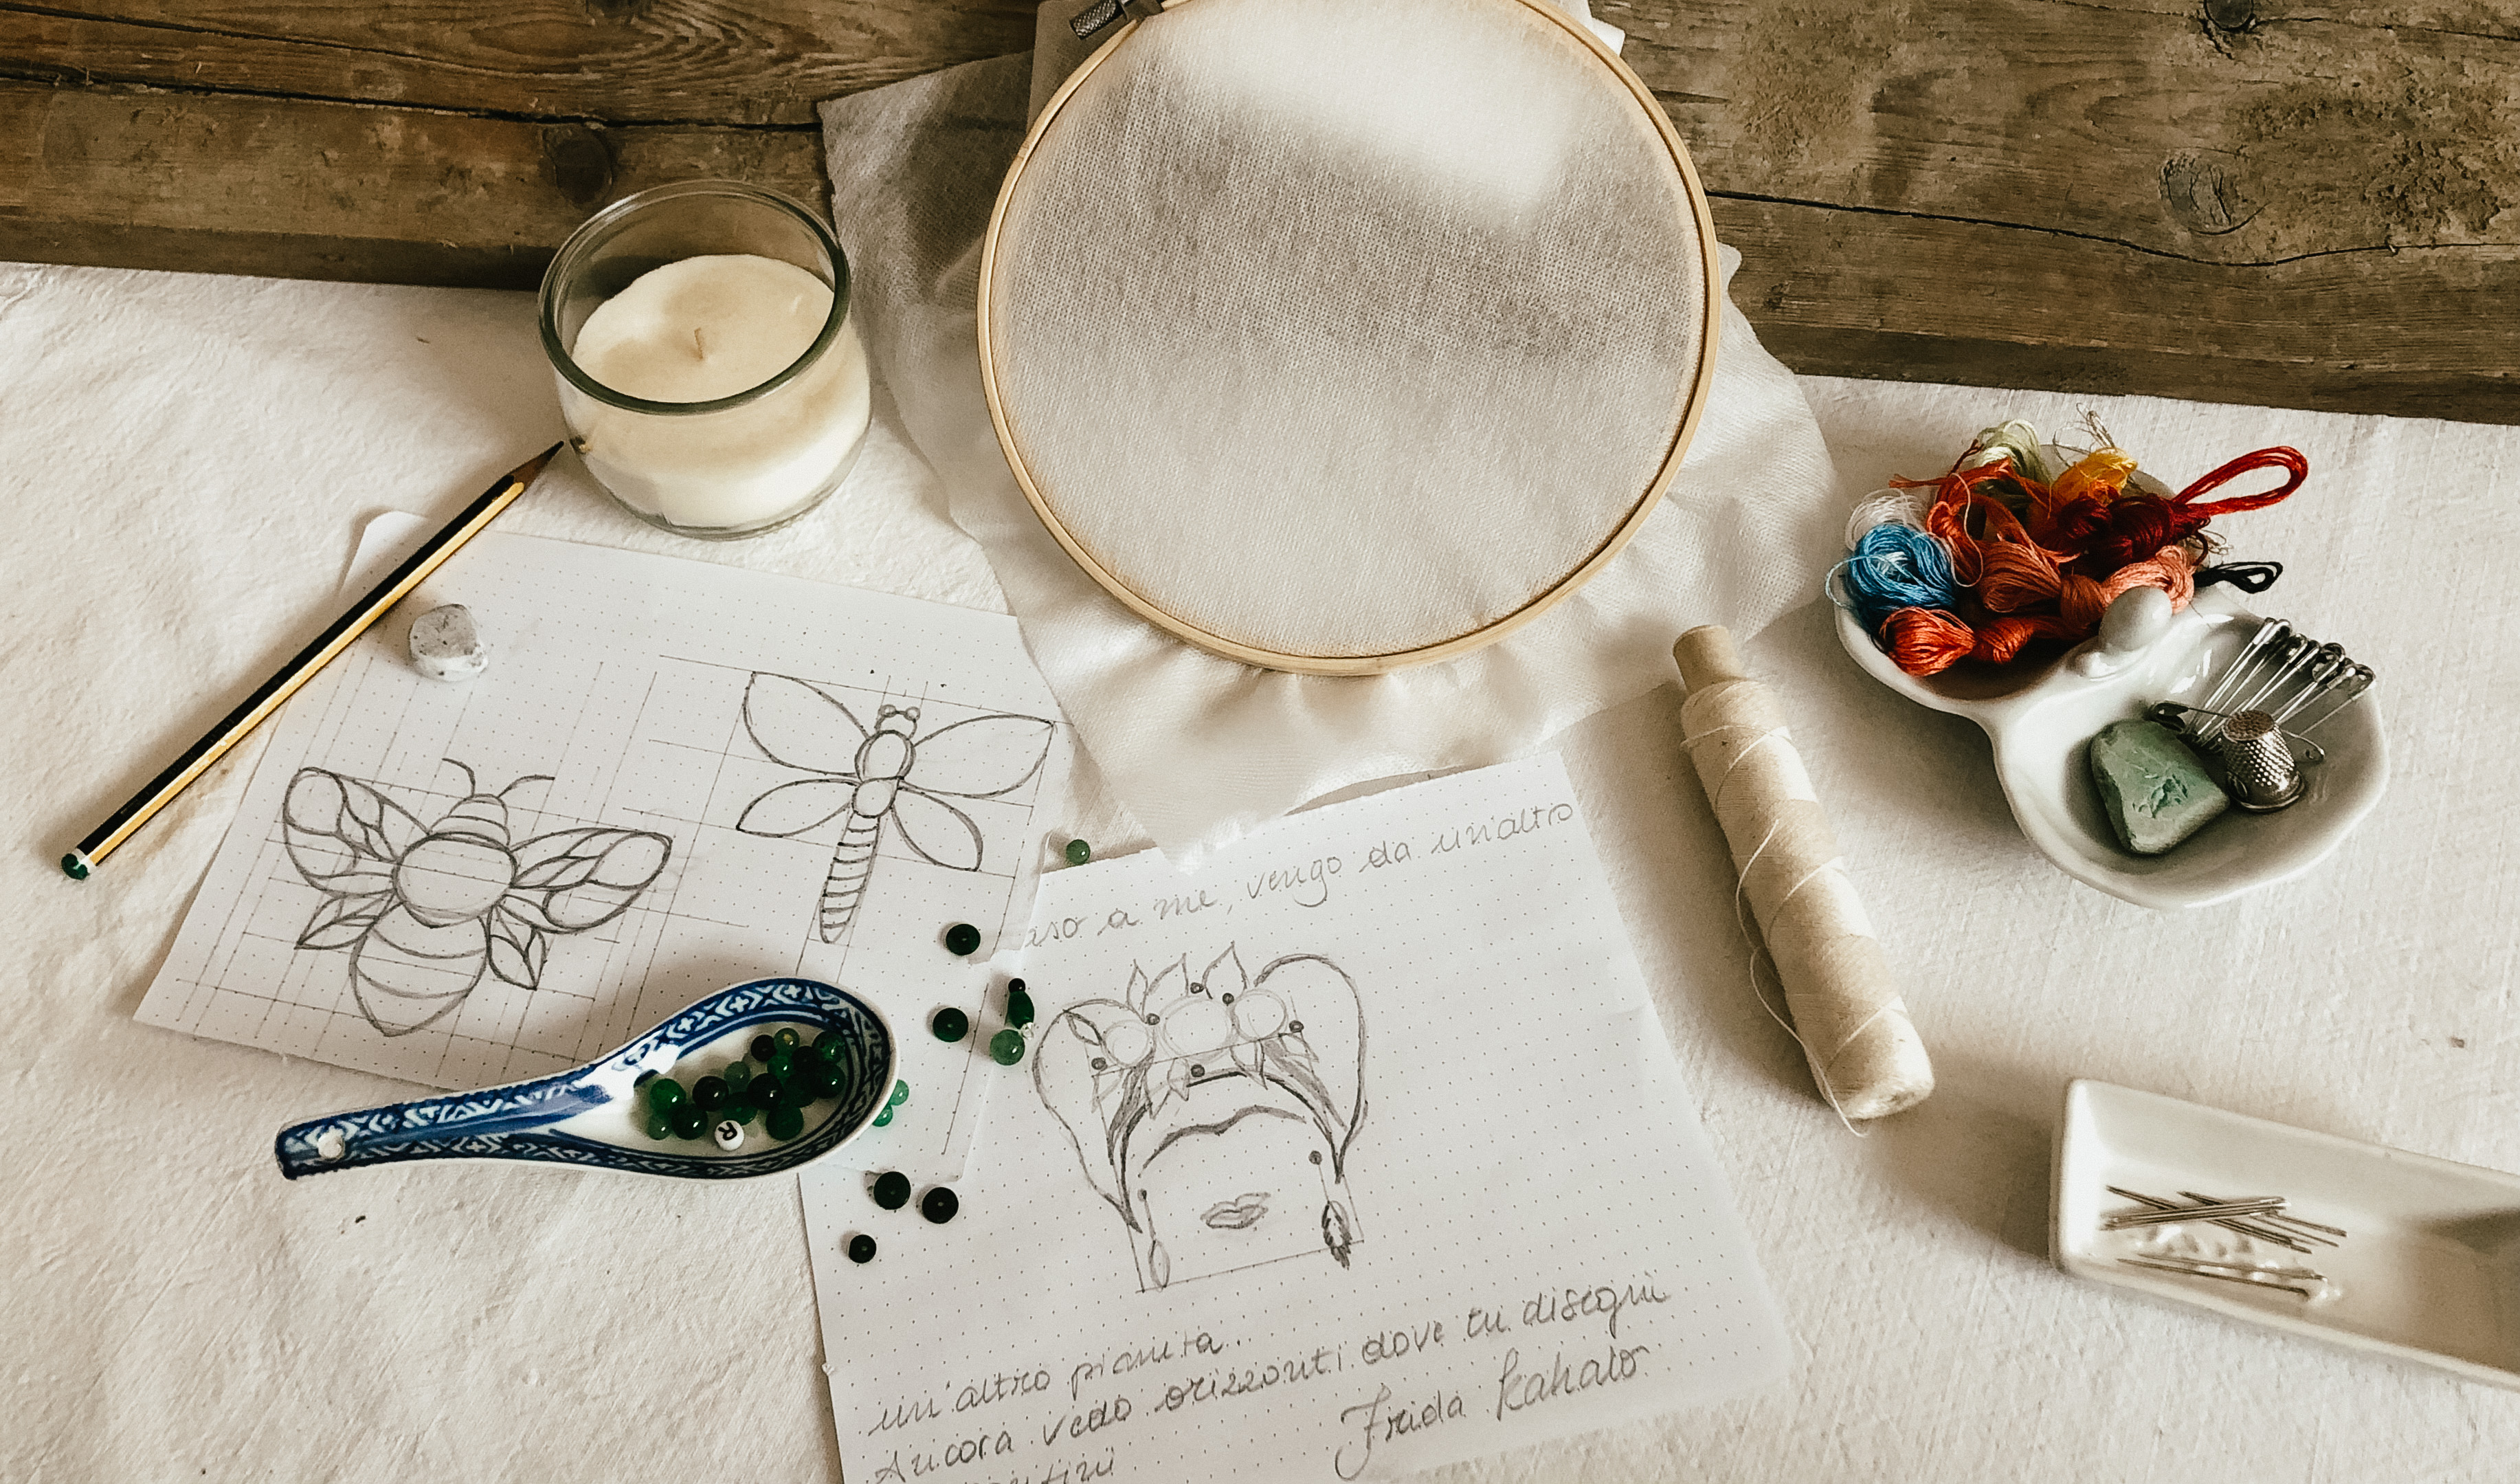 aso a me, vengo da un'altro
R
un'altro pianeta..
Ancora vedo orizzonti dove tu disegni
Frida Kahalo